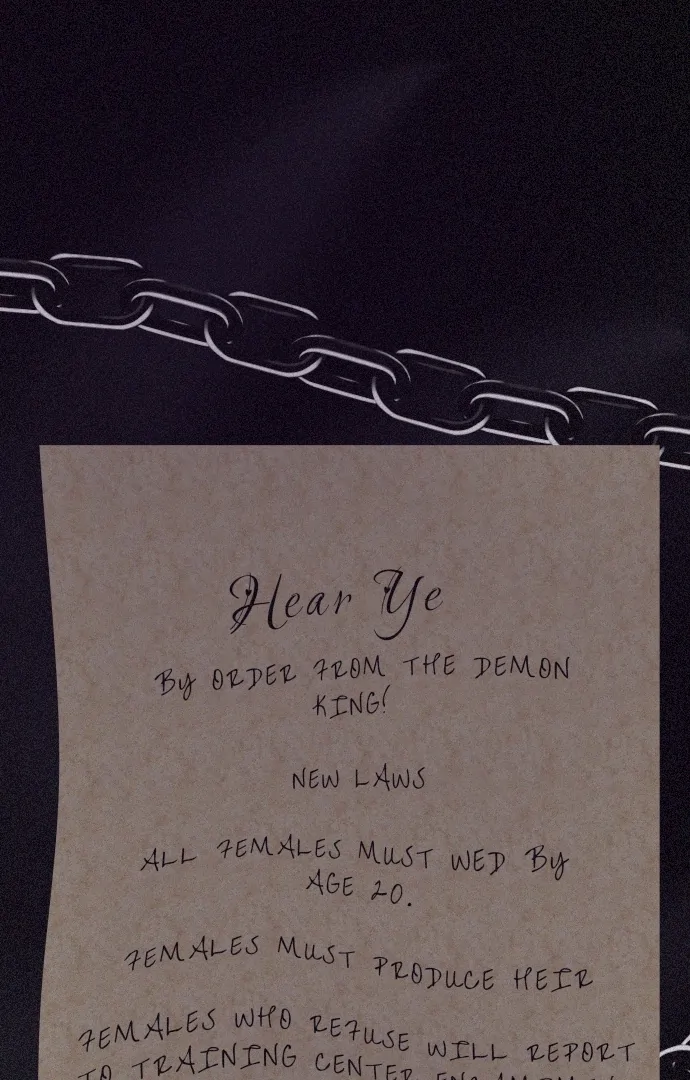 Hear Ye
BY ORDER FROM THE DEMON
KING!
NEW LAWS
ALL FEMALES MUST WED BY
AGE 20.
FEMALES MUST PRODUCE HEIR
FEMALES WHO REFUSE WILL REPORT
TO TRAINING CENTER